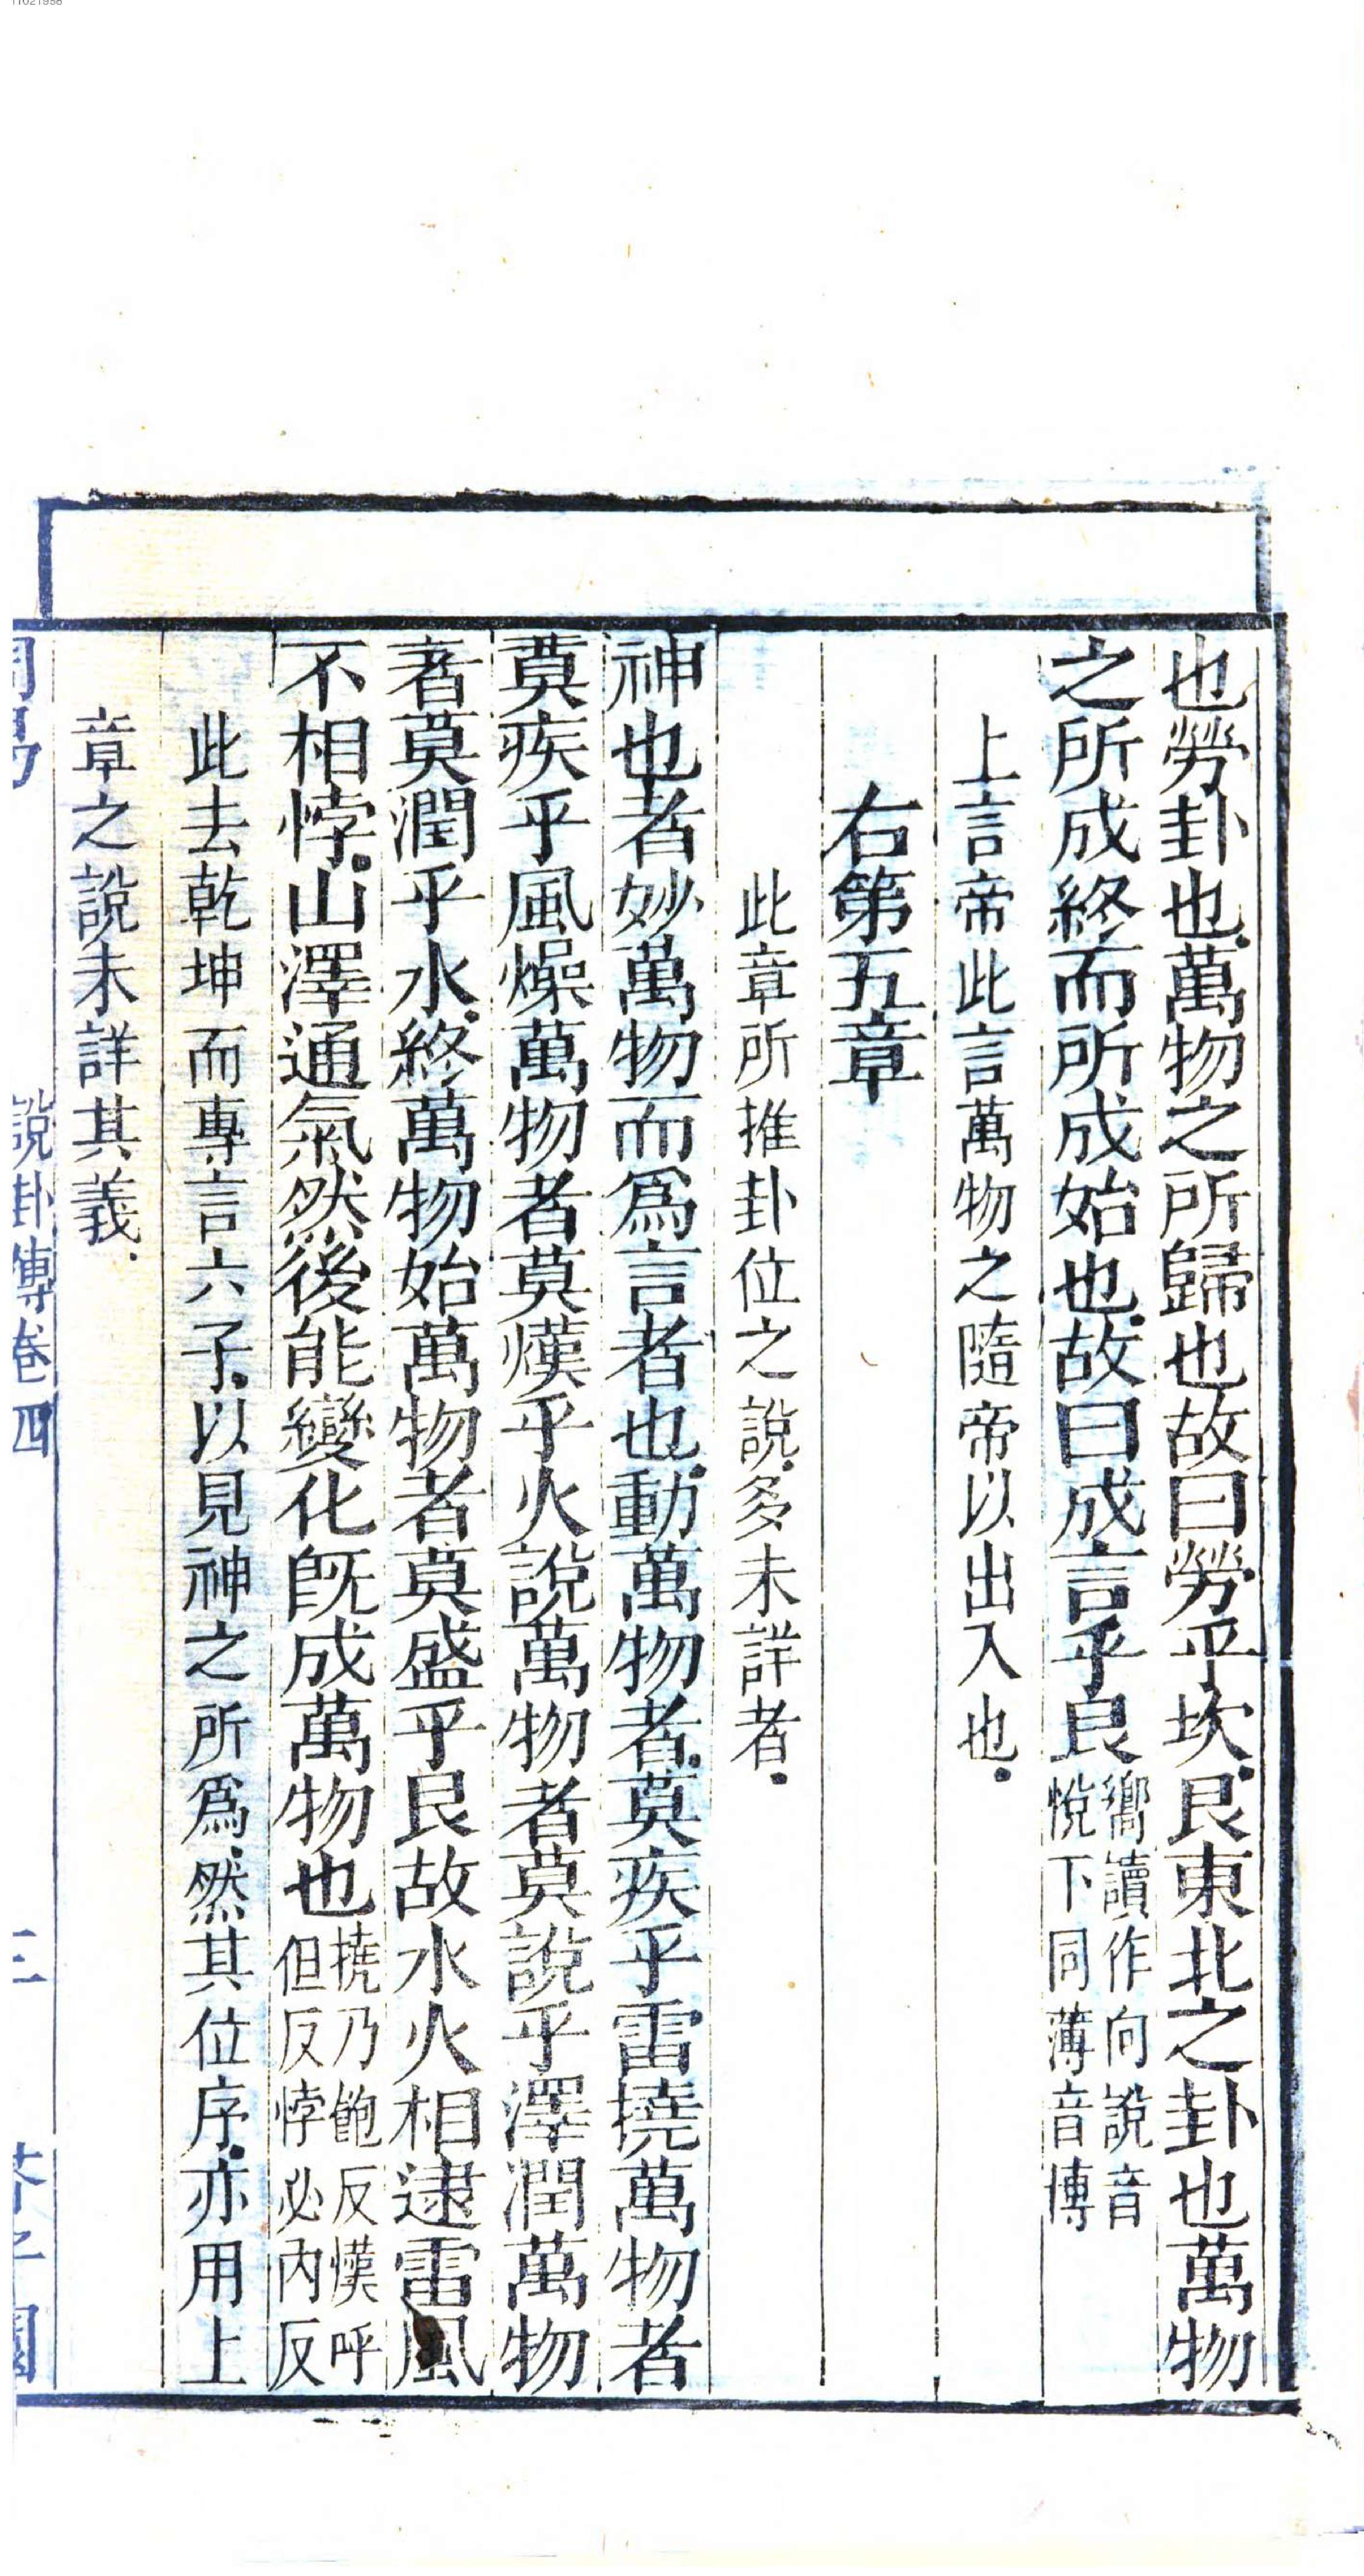 也勞卦也萬物之所歸也故曰勞乎坎艮東北之卦也萬物
之所成終而所成始也故曰成言乎艮嚮讀作向說音悅下同薄音博
上言帝此言萬物之隨帝以出入也
右第五章
此章所推卦位之說多未詳者
神也者妙萬物而爲言者也動萬物者莫疾乎雷撓萬物者
莫疾乎風燥萬物者莫熯乎火說萬物者莫說乎澤潤萬物
者莫潤乎水終萬物始萬物者莫盛乎艮故水火相逮雷風
不相悖山澤通氣然後能變化旣成萬物也撓乃飽反熯呼但反悖必內反
此去乾坤而專言六子以見神之所爲然其位序亦用上
章之說未詳其義
說卦傳卷四